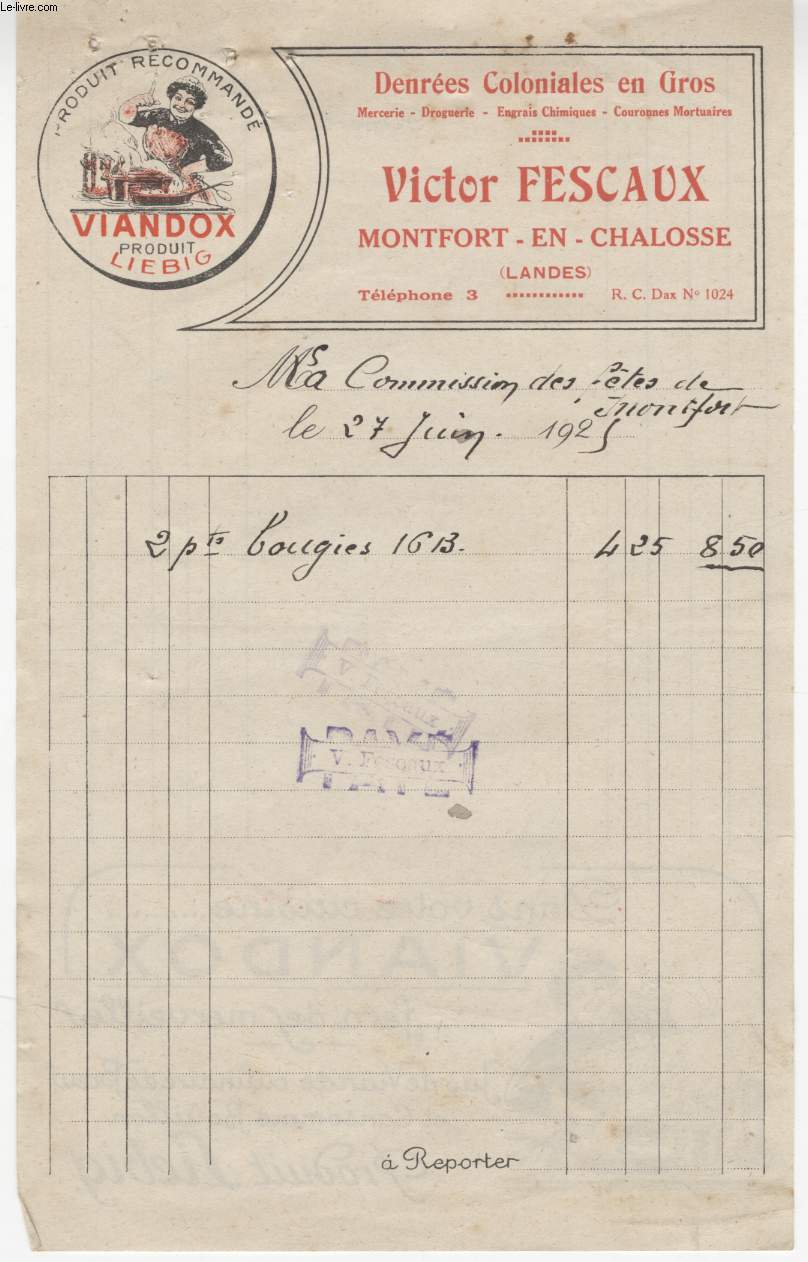 Le-livre.com
PRODUIT RECOMMANDÉ
VIANDOX
PRODUIT
LIEBIG
Denrées Coloniales en Gros
Mercerie - Droguerie - Engrais Chimiques - Couronnes Mortuaires
Victor FESCAUX
MONTFORT - EN - CHALOSSE
(LANDES)
Téléphone 3 R. C. Dax Nº 1024
La Commission des fêtes de
Montfort
le 27 Juin. 1925
2 pts bougies 16 B. 4 25 8 50
V. Fescaux
PAYÉ
V. Fescaux
VIANDOX
à Reporter